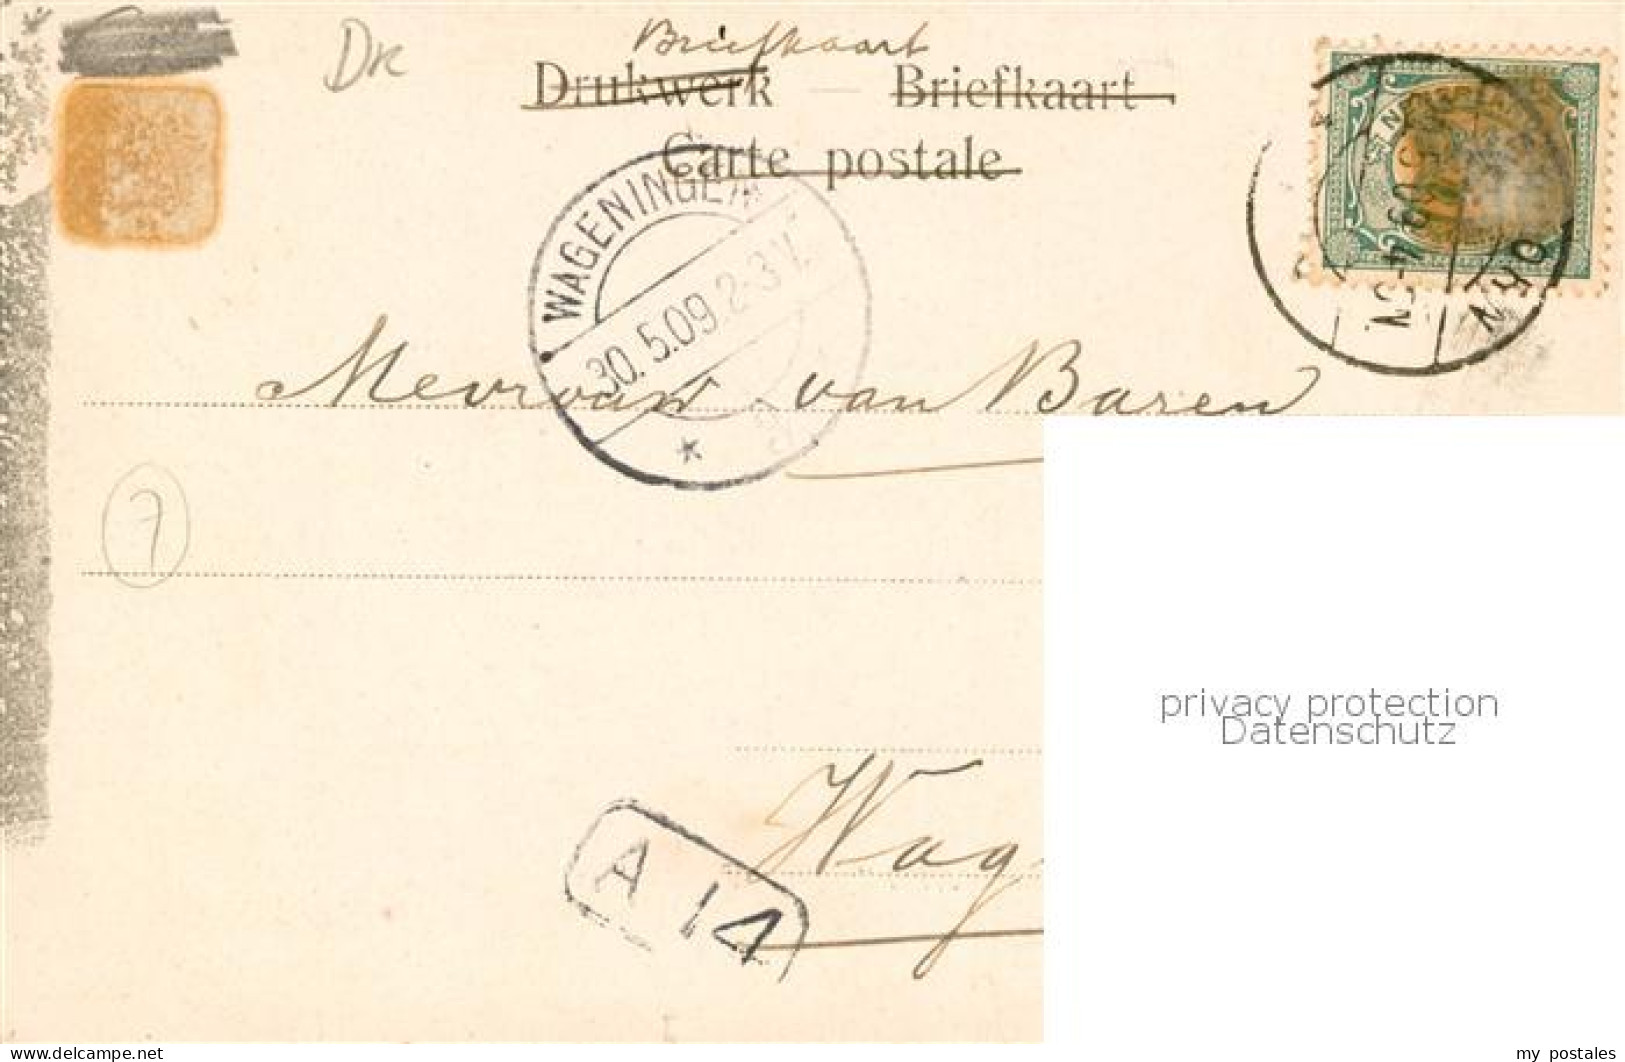 Dr
Briefkaart
Drukwerk — Briefkaart
Carte postale
WAGENINGEN
30.5.09 2-3V.
4-5N
Mevrouw van Baren
7
privacy protection
Datenschutz
Wag
A 14
www.delcampe.net
my_postales